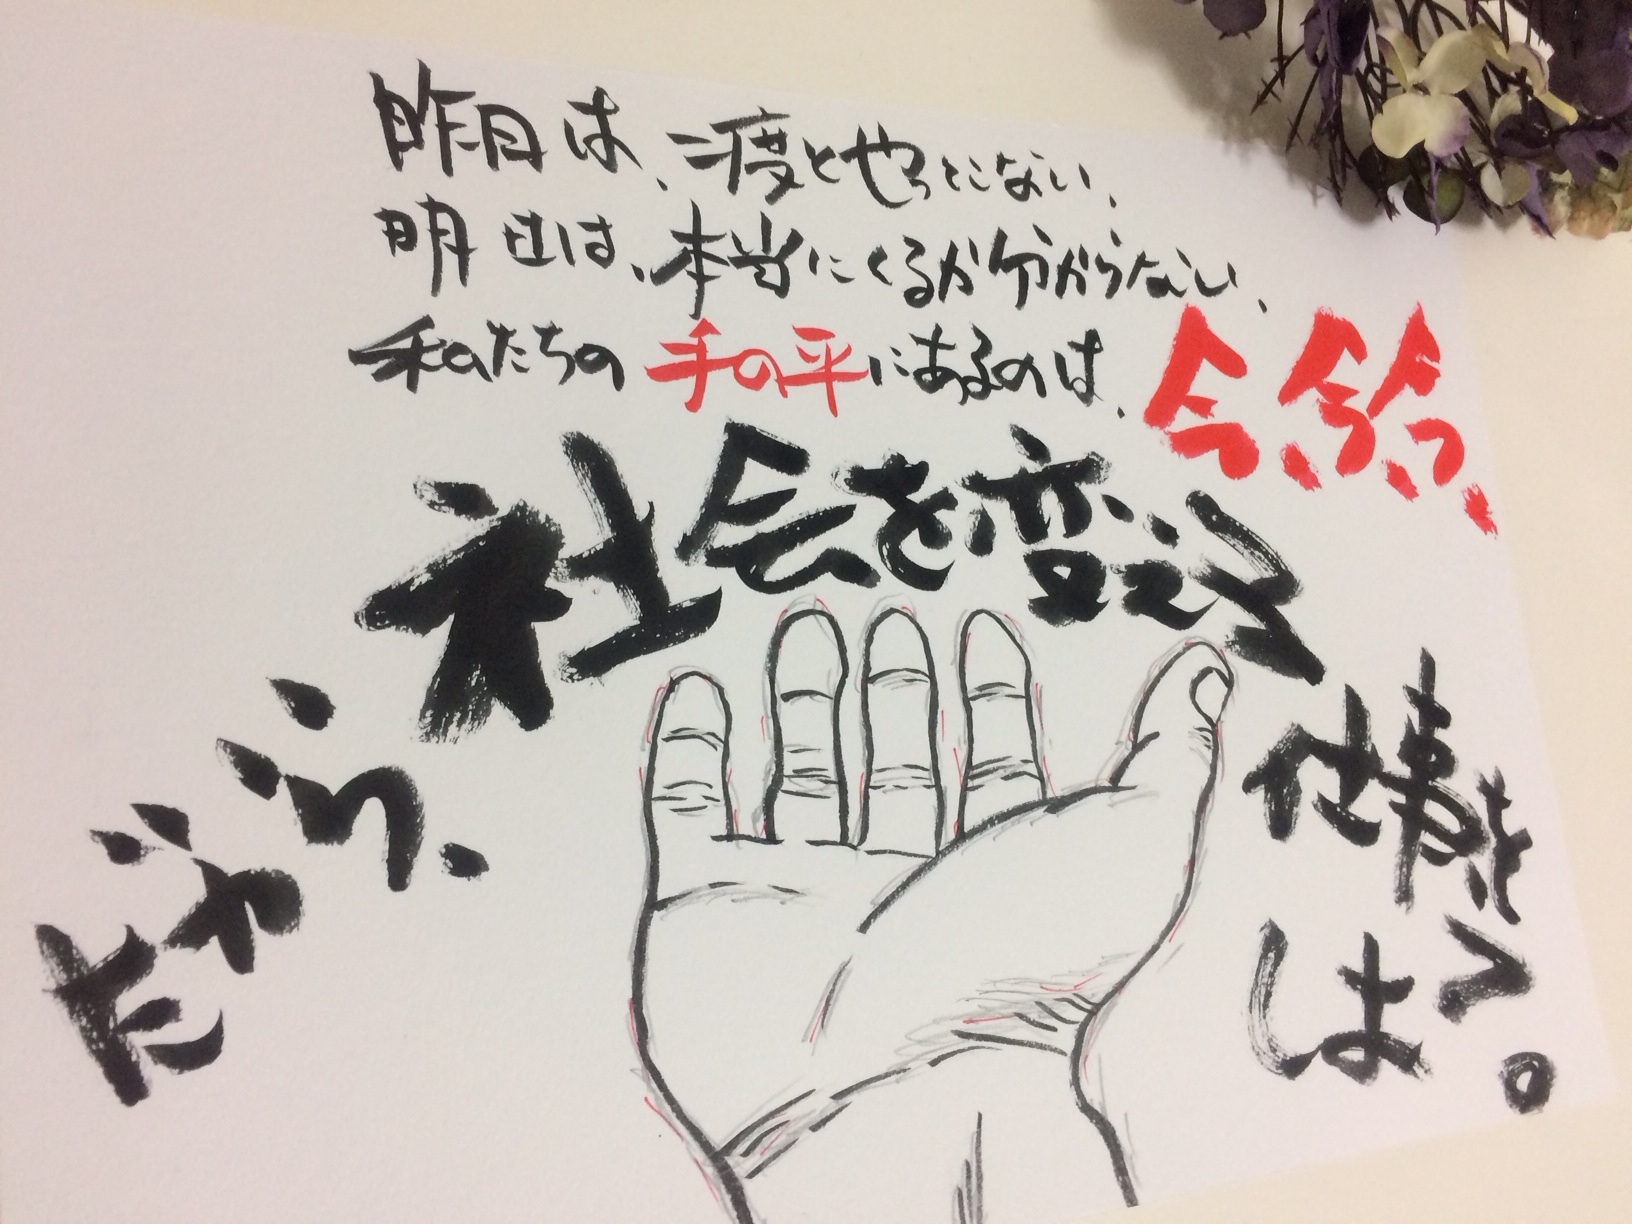 昨日は、二度とやってこない、
明日は、本当にくるか分からない、
私たちの手の平にあるのは、今、今、今っ、
だから、
社会を変える
仕事を
しよう。